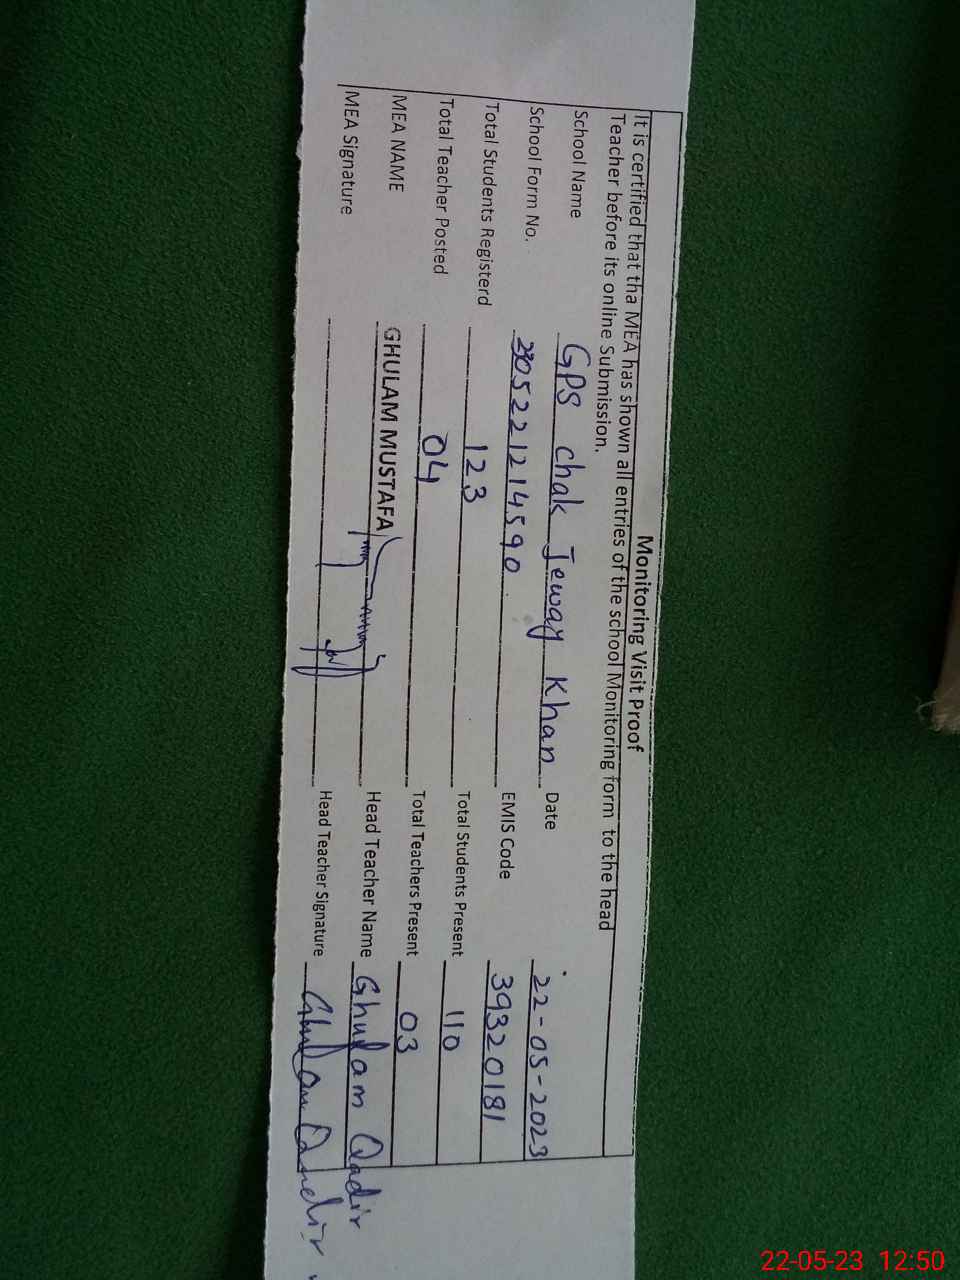 Monitoring Visit Proof
It is certified that tha MEA has shown all entries of the school Monitoring form to the head
Teacher before its online Submission.
School Name GPS Chak Jeway Khan Date 22-05-2023
School Form No. 2305221214590 EMIS Code 39320181
Total Students Registerd 123 Total Students Present 110
Total Teacher Posted 04 Total Teachers Present 03
MEA NAME GHULAM MUSTAFA Head Teacher Name Ghulam Qadir
MEA Signature Head Teacher Signature Ghulam Qadir
22-05-23 12:50